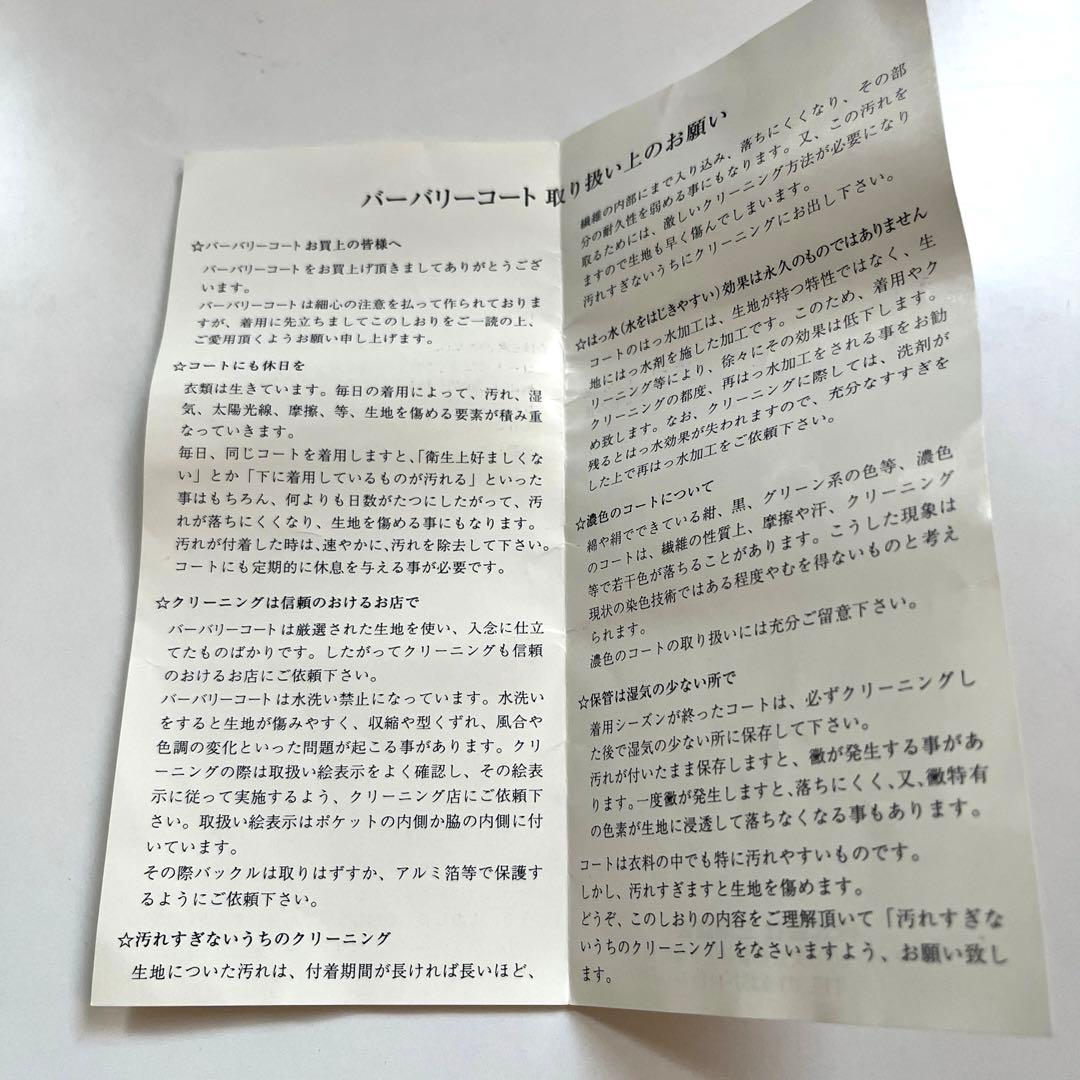 バーバリーコート 取り扱い上のお願い
☆バーバリーコートお買上の皆様へ
バーバリーコートをお買上げ頂きましてありがとうござ
います。
バーバリーコートは細心の注意を払って作られておりま
すが、着用に先立ちましてこのしおりをご一読の上、
ご愛用頂くようお願い申し上げます。
☆コートにも休日を
衣類は生きています。毎日の着用によって、汚れ、湿
気、太陽光線、摩擦、等、生地を傷める要素が積み重
なっていきます。
毎日、同じコートを着用しますと、「衛生上好ましくな
い」とか「下に着用しているものが汚れる」といった
事はもちろん、何よりも日数がたつにしたがって、汚
れが落ちにくくなり、生地を傷める事にもなります。
汚れが付着した時は、速やかに、汚れを除去して下さい。
コートにも定期的に休息を与える事が必要です。
☆クリーニングは信頼のおけるお店で
バーバリーコートは厳選された生地を使い、入念に仕立
てたものばかりです。したがってクリーニングも信頼
のおけるお店にご依頼下さい。
バーバリーコートは水洗い禁止になっています。水洗い
をすると生地が傷みやすく、収縮や型くずれ、風合や
色調の変化といった問題が起こる事があります。クリ
ーニングの際は取扱い絵表示をよく確認し、その絵表
示に従って実施するよう、クリーニング店にご依頼下
さい。取扱い絵表示はポケットの内側か脇の内側に付
いています。
その際バックルは取りはずすか、アルミ箔等で保護す
るようにご依頼下さい。
☆汚れすぎないうちのクリーニング
生地についた汚れは、付着期間が長ければ長いほど、
繊維の内部にまで入り込み、落ちにくくなり、その部
分の耐久性を弱める事にもなります。又、この汚れを
取るためには、激しいクリーニング方法が必要になり
ますので生地も早く傷んでしまいます。
汚れすぎないうちにクリーニングにお出し下さい。
☆はっ水(水をはじきやすい)効果は永久のものではありません
コートのはっ水加工は、生地が持つ特性ではなく、生
地にはっ水剤を施した加工です。このため、着用やク
リーニング等により、徐々にその効果は低下します。
クリーニングの都度、再はっ水加工をされる事をお勧
め致します。なお、クリーニングに際しては、洗剤が
残るとはっ水効果が失われますので、充分なすすぎを
した上で再はっ水加工をご依頼下さい。
☆濃色のコートについて
綿や絹でできている紺、黒、グリーン系の色等、濃色
のコートは、繊維の性質上、摩擦や汗、クリーニング
等で若干色が落ちることがあります。こうした現象は
現状の染色技術ではある程度やむを得ないものと考え
られます。
濃色のコートの取り扱いには充分ご留意下さい。
☆保管は湿気の少ない所で
着用シーズンが終ったコートは、必ずクリーニングし
た後で湿気の少ない所に保存して下さい。
汚れが付いたまま保存しますと、黴が発生する事があ
ります。一度黴が発生しますと、落ちにくく、又、黴特有
の色素が生地に浸透して落ちなくなる事もあります。
コートは衣料の中でも特に汚れやすいものです。
しかし、汚れすぎますと生地を傷めます。
どうぞ、このしおりの内容をご理解頂いて「汚れすぎな
いうちのクリーニング」をなさいますよう、お願い致し
ます。